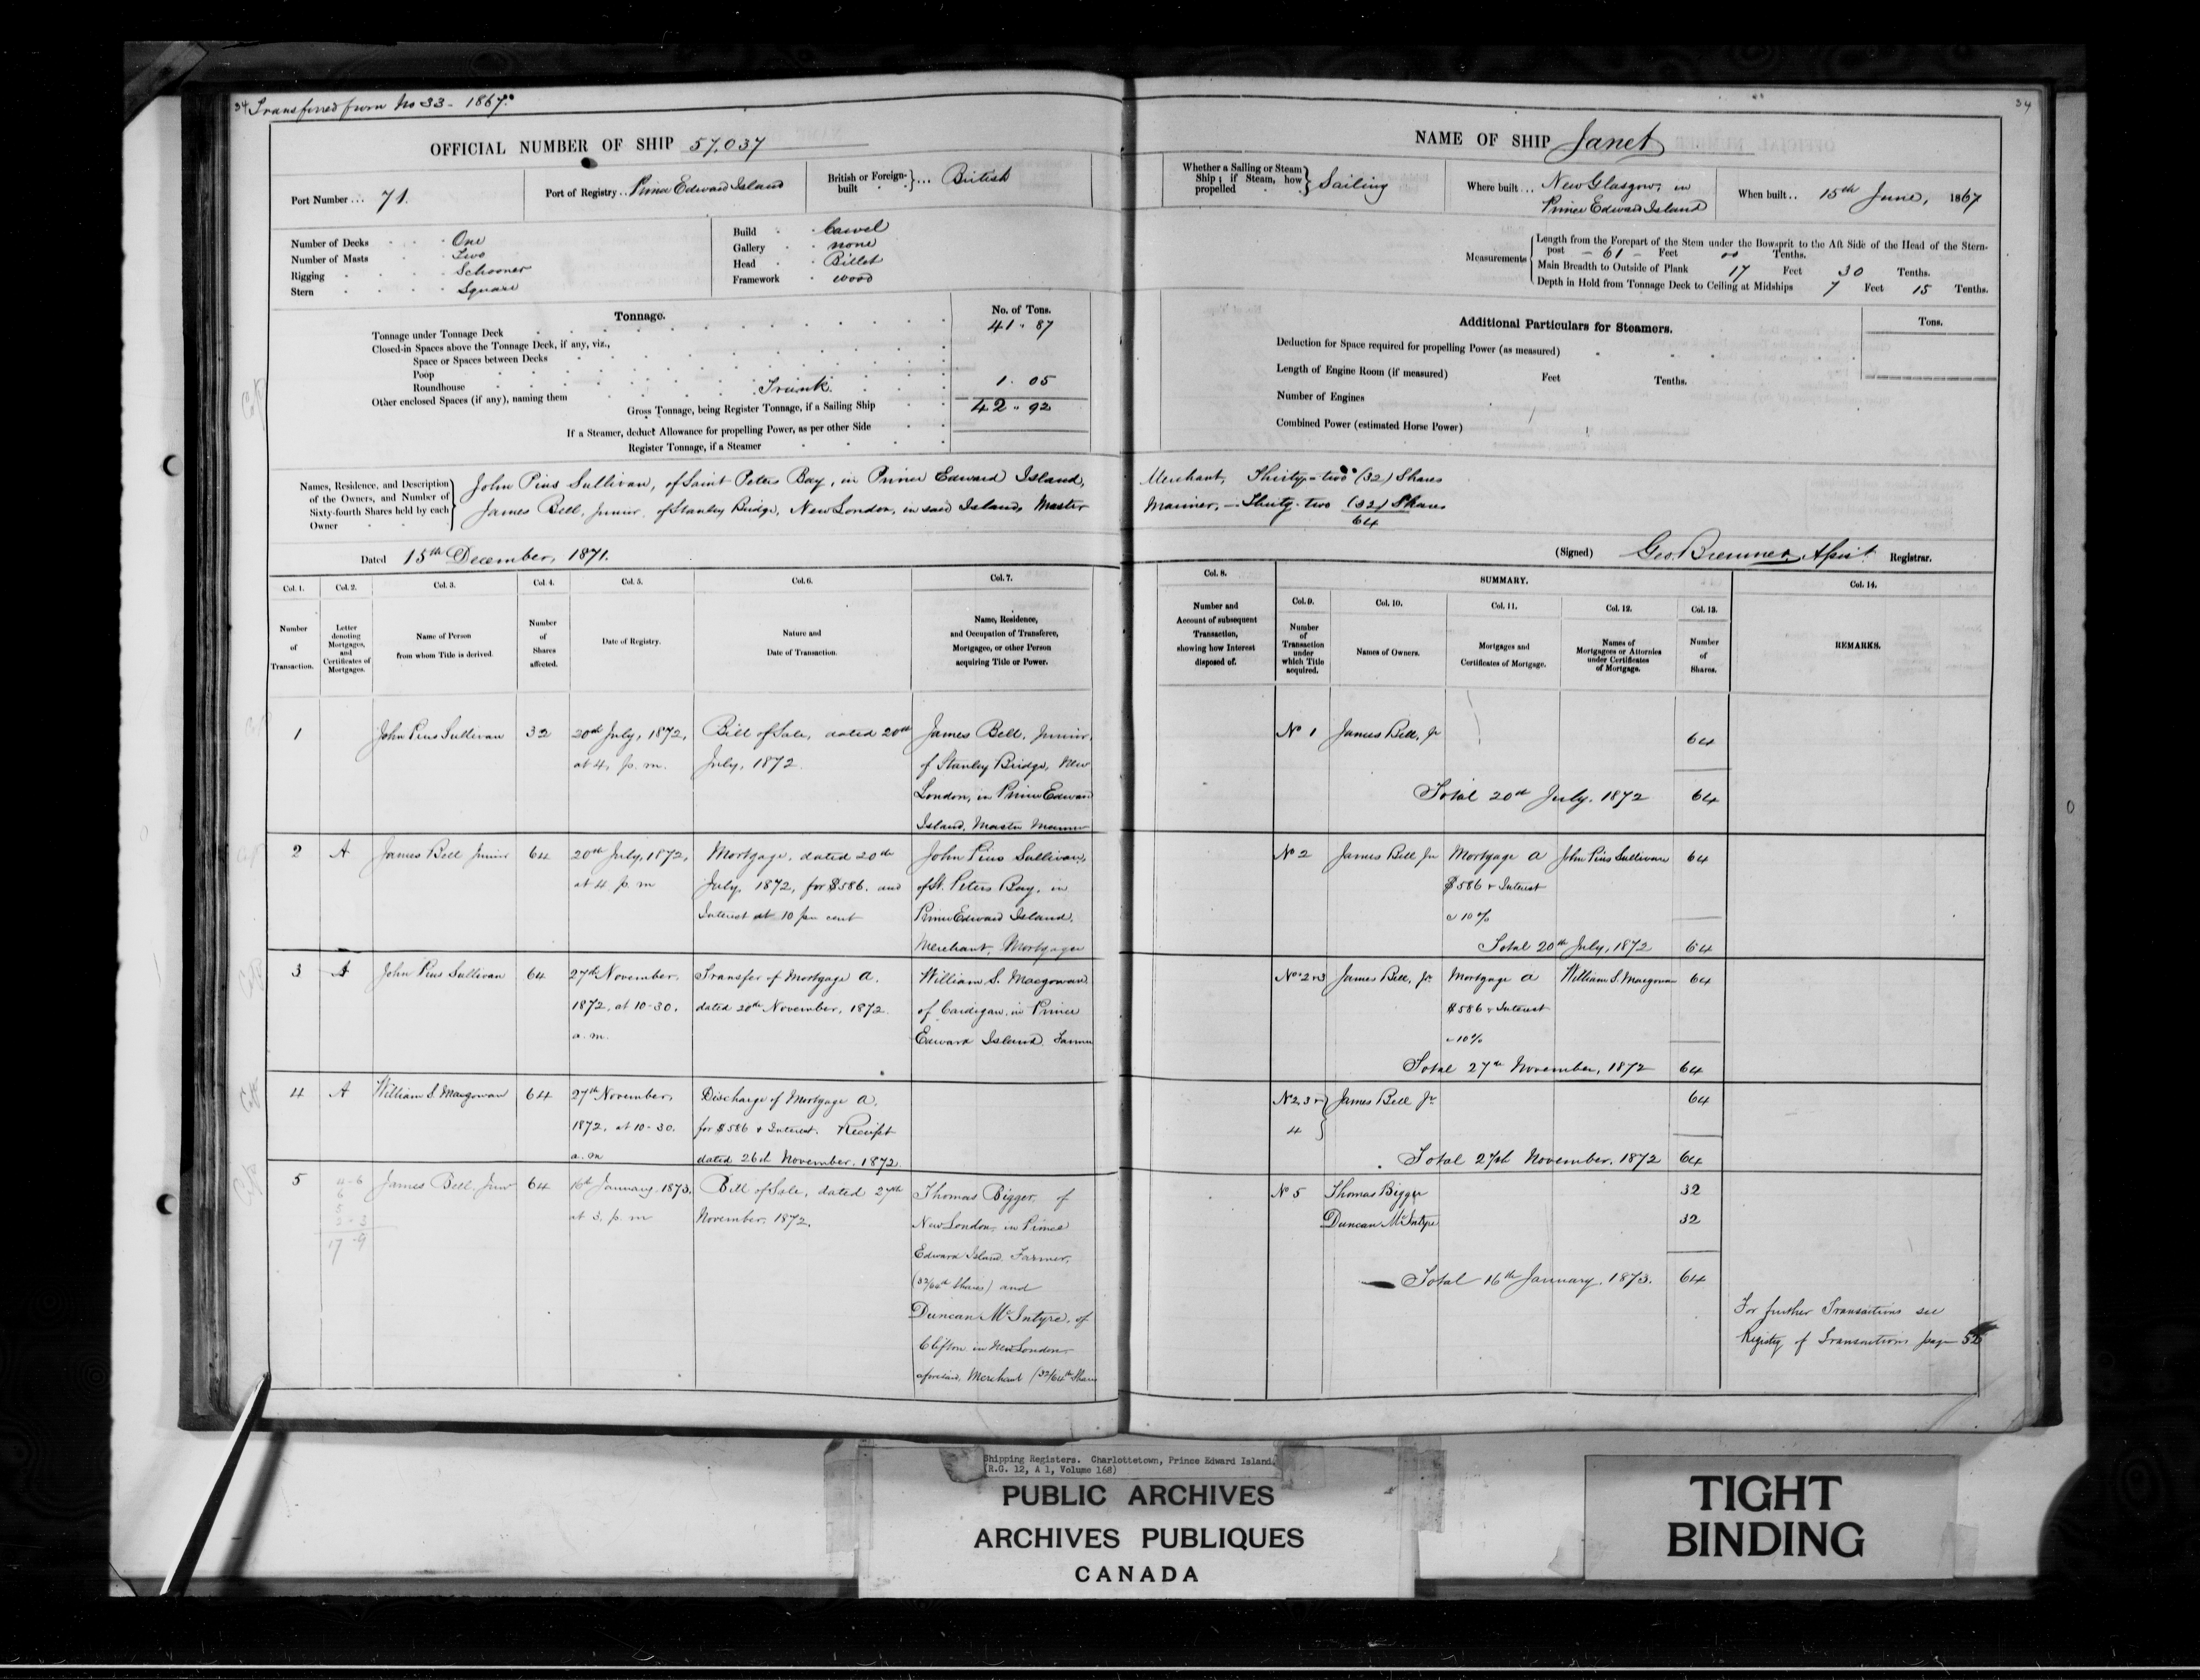 34 Transferred from No 33 - 1867.
34
OFFICIAL NUMBER OF SHIP 57,037
Port Number ... 71.
Port of Registry .. Prince Edward Island
British or Foreign-built }... British
Number of Decks One
Number of Masts Two
Rigging Schooner
Stern Square
Build Carvel
Gallery none
Head Billet
Framework wood
Tonnage.
No. of Tons.
Tonnage under Tonnage Deck 41 . 87
Closed-in Spaces above the Tonnage Deck, if any, viz.,
Space or Spaces between Decks
Poop
Roundhouse
Other enclosed Spaces (if any), naming them Trunk 1 . 05
Gross Tonnage, being Register Tonnage, if a Sailing Ship 42 . 92
If a Steamer, deduct Allowance for propelling Power, as per other Side
Register Tonnage, if a Steamer
NAME OF SHIP Janet
Whether a Sailing or Steam Ship; if Steam, how propelled } Sailing
Where built ... New Glasgow, in
Prince Edward Island
When built .. 15th June, 1867
Measurements
Length from the Forepart of the Stem under the Bowsprit to the Aft Side of the Head of the Stern-
post - 61 - Feet 00 Tenths.
Main Breadth to Outside of Plank 17 Feet 30 Tenths.
Depth in Hold from Tonnage Deck to Ceiling at Midships 7 Feet 15 Tenths.
Additional Particulars for Steamers.
Tons.
Deduction for Space required for propelling Power (as measured)
Length of Engine Room (if measured) Feet Tenths.
Number of Engines
Combined Power (estimated Horse Power)
Names, Residence, and Description
of the Owners, and Number of
Sixty-fourth Shares held by each
Owner
John Pius Sullivan, of Saint Peters Bay, in Prince Edward Island, Merchant, Thirty-two (32) Shares
James Bell, junior, of Stanley Bridge, New London, in said Island, Master Mariner, - Thirty-two (32) Shares
64
Dated 15th December, 1871.
(Signed) Geo. Bremner, Registrar.
Col. 1. Col. 2. Col. 3. Col. 4. Col. 5. Col. 6. Col. 7.
Number of Transaction.
Letter denoting Mortgages, and Certificates of Mortgages.
Name of Person from whom Title is derived.
Number of Shares affected.
Date of Registry.
Nature and Date of Transaction.
Name, Residence, and Occupation of Transferee, Mortgagee, or other Person acquiring Title or Power.
Col. 8.
Number and Account of subsequent Transaction, showing how Interest disposed of.
SUMMARY.
Col. 9. Col. 10. Col. 11. Col. 12. Col. 13. Col. 14.
Number of Transaction under which Title acquired.
Names of Owners.
Mortgages and Certificates of Mortgage.
Names of Mortgagees or Attornies under Certificates of Mortgage.
Number of Shares.
REMARKS.
1
John Pius Sullivan
32
20th July, 1872,
at 4, p. m.
Bill of Sale, dated 20th
July, 1872
James Bell, Junior,
of Stanley Bridge, New
London, in Prince Edward
Island, Master Mariner
No 1 James Bell, Jr 64
Total 20th July, 1872 64
2
A
James Bell Junior
64
20th July, 1872,
at 4 p. m
Mortgage, dated 20th
July, 1872, for $586. and
Interest at 10 per cent
John Pius Sullivan,
of St. Peters Bay, in
Prince Edward Island,
Merchant, Mortgagee
No 2 James Bell Jr Mortgage A John Pius Sullivan 64
$586 & Interest
@ 10%
Total 20th July, 1872 64
3
A
John Pius Sullivan
64
27th November,
1872, at 10-30,
a. m.
Transfer of Mortgage A.
dated 20th November, 1872
William S. Macgowan,
of Cardigan, in Prince
Edward Island Farmer
No 2 & 3 James Bell, Jr. Mortgage A William S. Macgowan 64
$586 & Interest
@ 10%
Total 27th November, 1872 64
4
A
William S. Macgowan
64
27th November,
1872, at 10-30.
a. m
Discharge of Mortgage A.
for $586 & Interest. Receipt
dated 26th November, 1872.
No 2, 3 & James Bell Jr 64
4
Total 27th November, 1872 64
5
4-6
6
5
2-3
17 9
James Bell, Junr
64
16th January, 1873,
at 3, p. m
Bill of Sale, dated 27th
November, 1872,
Thomas Bigger, of
New London, in Prince
Edward Island, Farmer,
(32/64th Shares) and
Duncan McIntyre, of
Clifton in New London
aforesaid, Merchant (32/64th Shares
No 5 Thomas Bigger 32
Duncan McIntyre 32
Total 16th January, 1873. 64
For further Transactions see
Registry of Transactions page 52
Shipping Registers. Charlottetown, Prince Edward Island.
(R.G. 12, A 1, Volume 168)
PUBLIC ARCHIVES
ARCHIVES PUBLIQUES
CANADA
TIGHT
BINDING